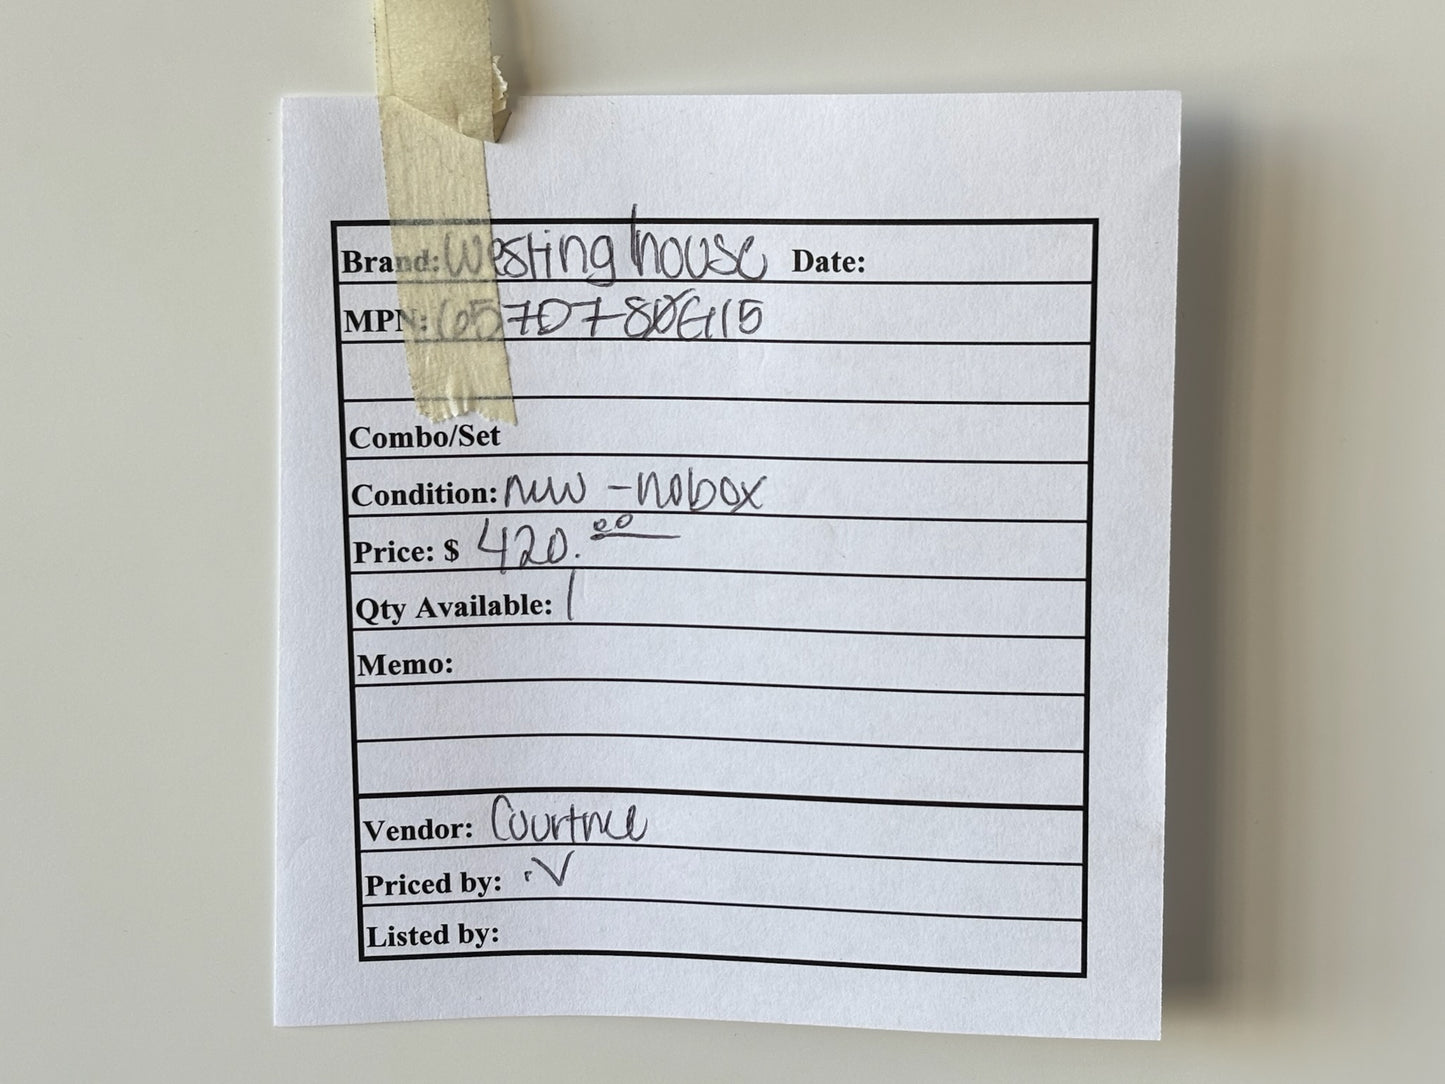 Brand: Westinghouse Date:
MPN: 6570780G15
Combo/Set
Condition: new - no box
Price: $ 420.00
Qty Available: 1
Memo:
Vendor: Courtnee
Priced by: V
Listed by: